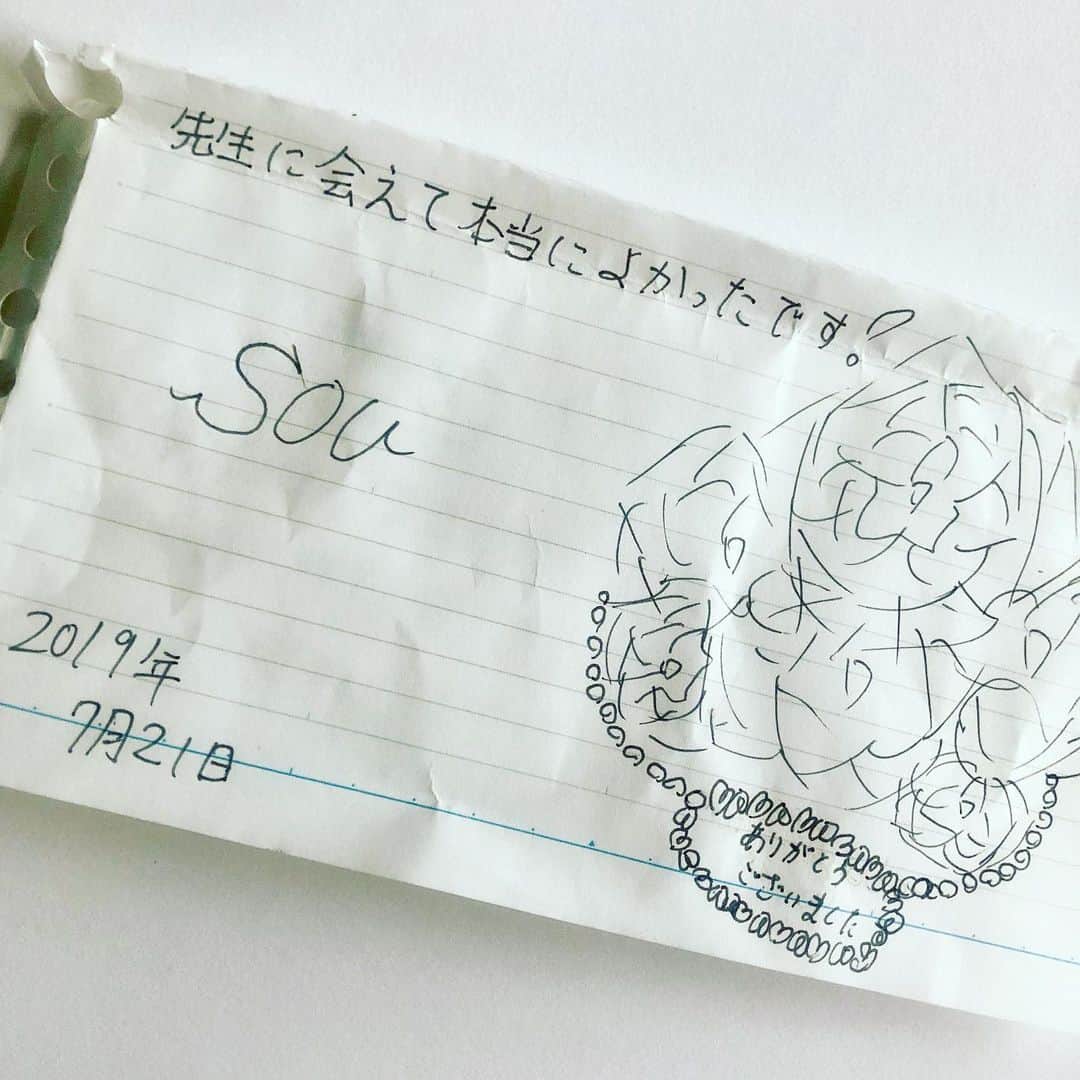 先生に会えて本当によかったです!
Sou
2019年
7月21日
ありがとう
ございました